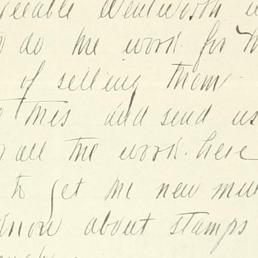 Wentworth
do the work for
of selling them
this and send us
all the work here
to get the new
know about stamps